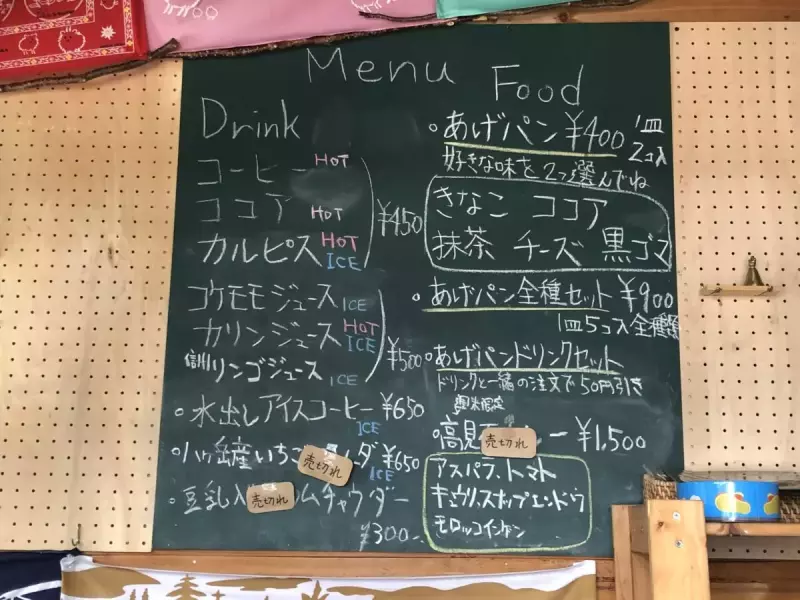 Menu
Drink
コーヒー HOT
ココア HOT
カルピス HOT ICE
¥450
コケモモジュース ICE
カリンジュース HOT ICE
信州リンゴジュース ICE
¥500
・水出しアイスコーヒー ¥650
ICE
・八ヶ岳産いちご ダ ¥650
売切れ
ICE
・豆乳入 ムチャウダー
売切れ
¥300
Food
・あげパン ¥400 1皿2コ入
好きな味を2つ選んでね
きなこ ココア
抹茶 チーズ 黒ゴマ
・あげパン全種セット ¥900
1皿5コ入全種類
・あげパンドリンクセット
ドリンクと一緒の注文で50円引き
・高見 ー ¥1,500
売切れ
アスパラ、トマト
キュウリ、スナップエンドウ
モロッコインゲン